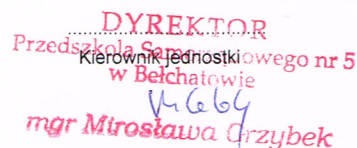 DYREKTOR
Przedszkola Samorządowego nr 5
Kierownik jednostki
w Bełchatowie
mgr Mirosława Grzybek